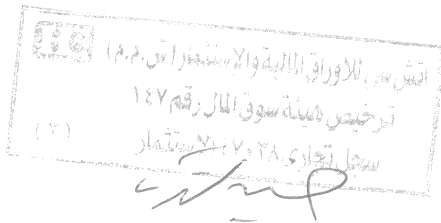 اتش سي للاوراق المالية والاستثمار (ش.م.م)
ترخيص هيئة سوق المال رقم ١٤٧
سجل تجارى الاستثمار
(٢)